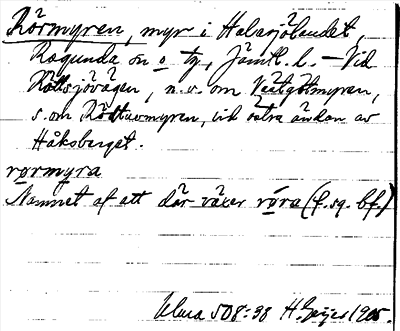 Rörmyren, myr i Halasjölandet,
Ragunda sn o tg, Jämtl. l. – Vid
Rötsjövägen, n.v. om Västgötmyren,
s. om Rödtuvmyren, vid östra ändan av
Håksberget.
rørmyra
Namnet af att där växer røra (f. sg. bf.)
Ulma 508:38 H. Geijer 1905.